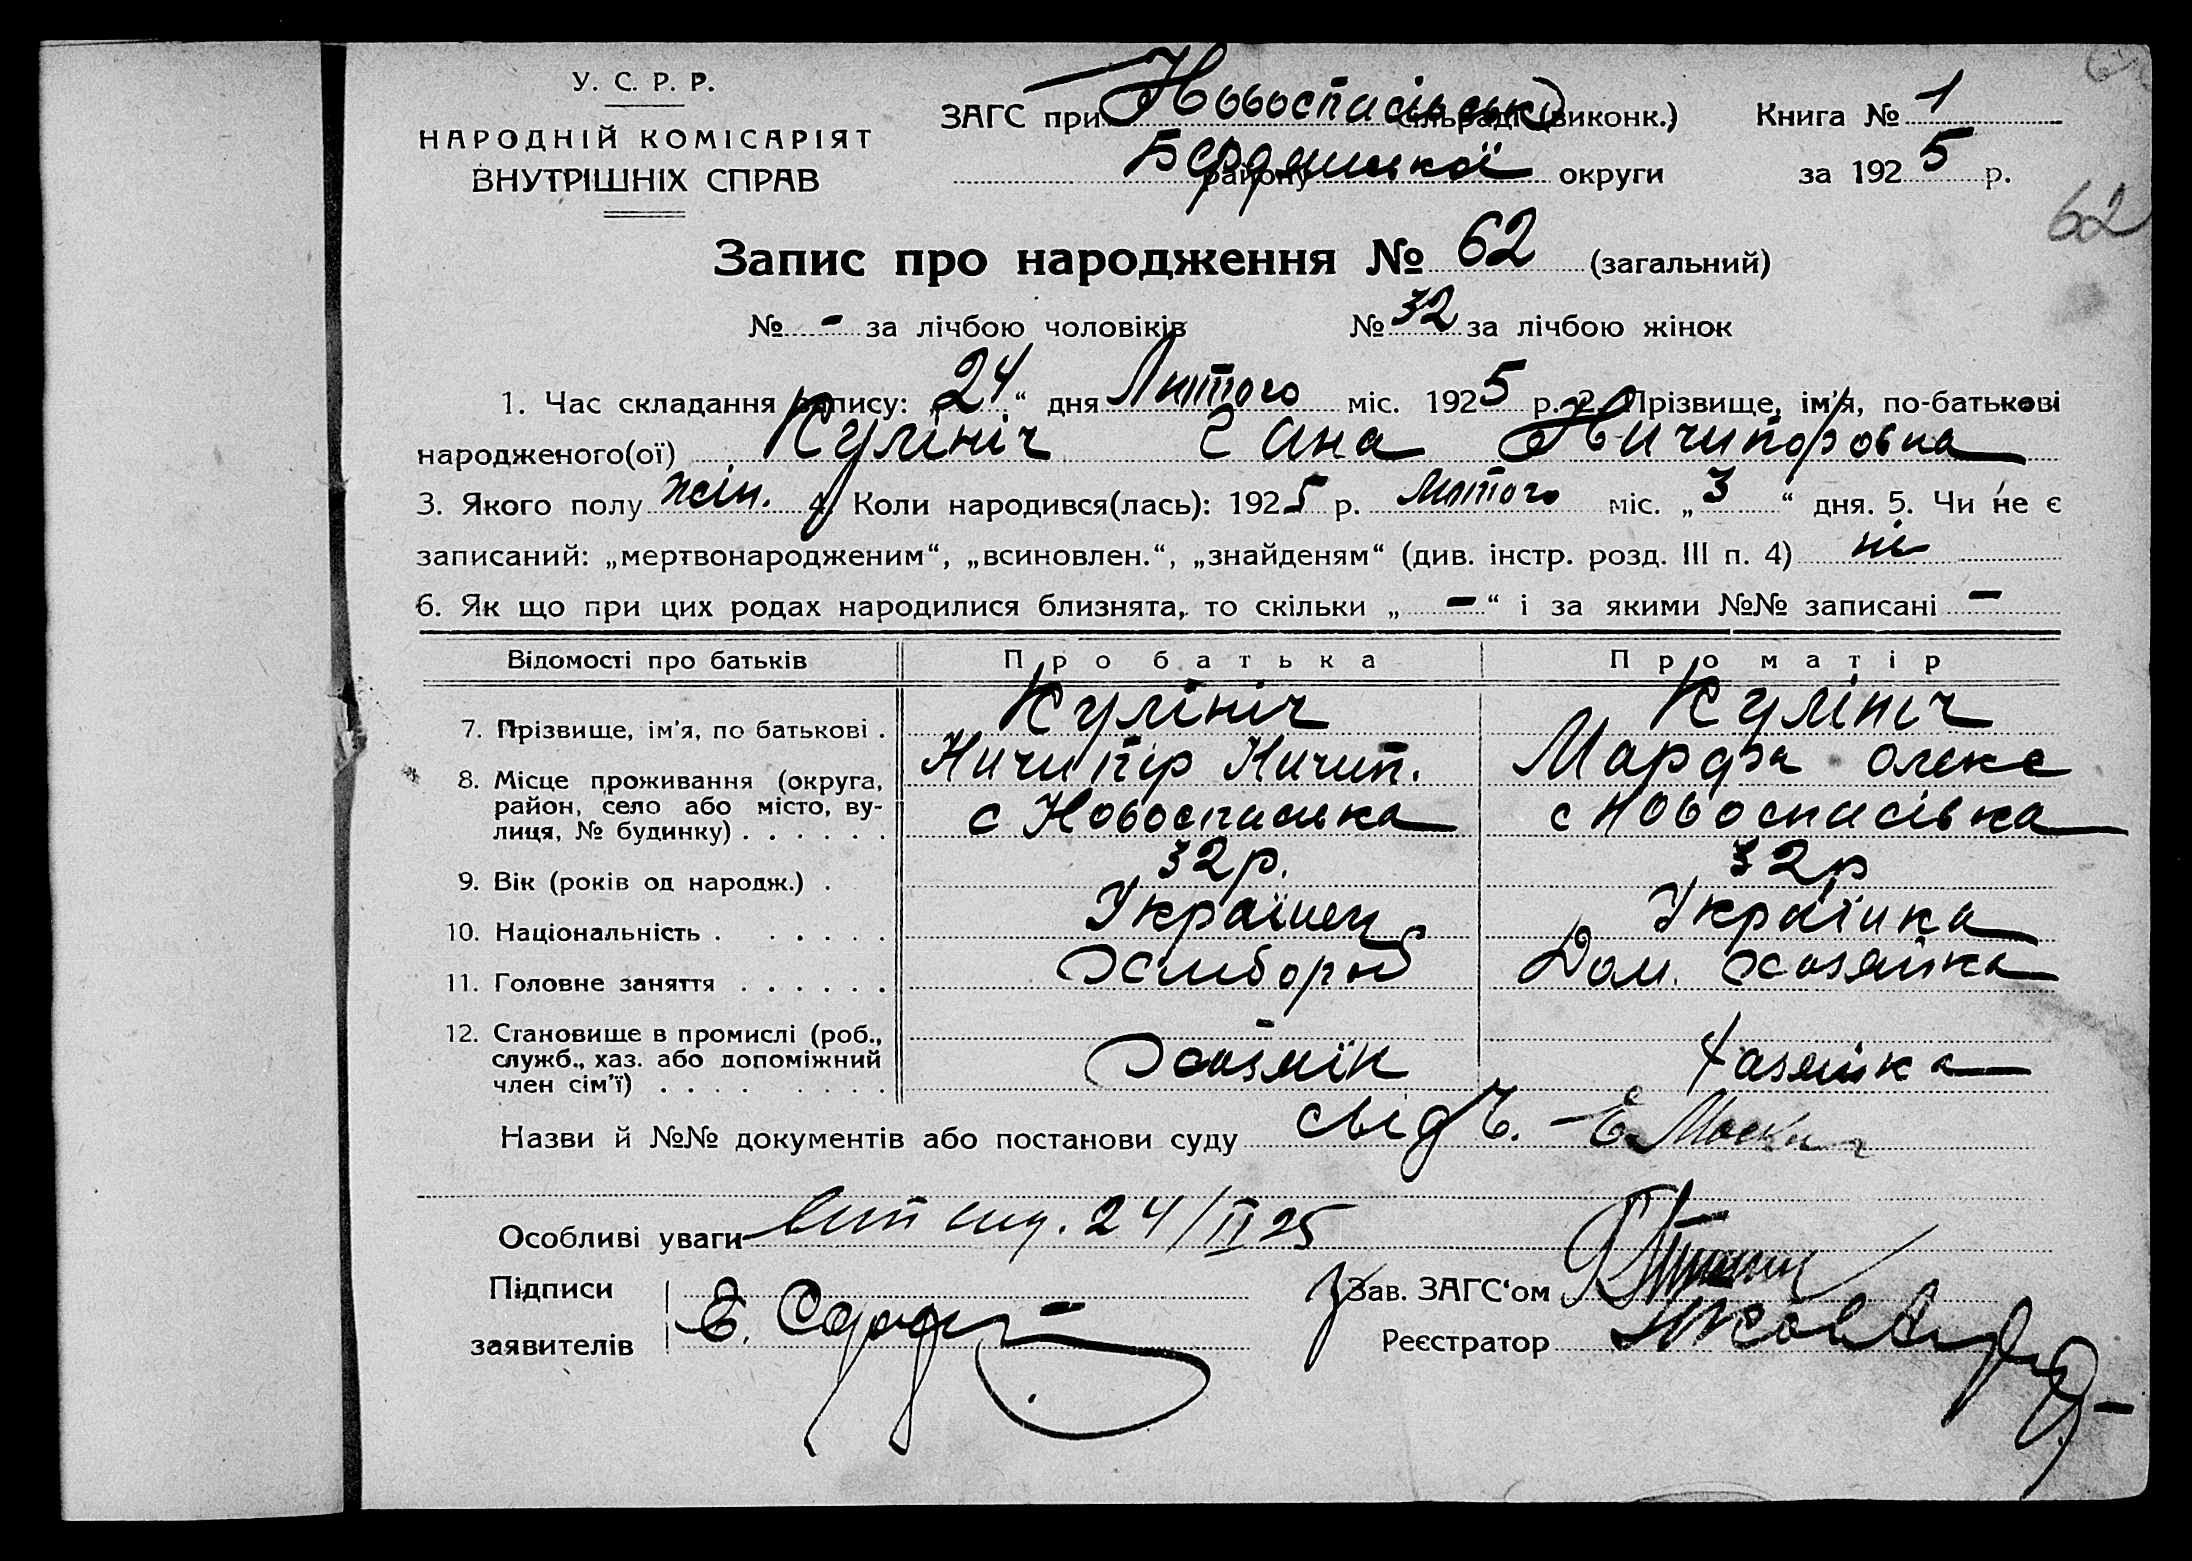 У. С. Р. Р.
НАРОДНІЙ КОМІСАРІЯТ
ВНУТРІШНІХ СПРАВ
ЗАГС при Новоспасівськ сільраді (виконк.) Книга № 1
Бердянської району округи за 1925 р.
62
Запис про народження № 62 (загальний)
№ - за лічбою чоловіків № 32 за лічбою жінок
1. Час складання запису: „24“ дня Лютого міс. 1925 р. 2. Прізвище, ім'я, по-батькові
народженого(ої) Кулініч Гана Ничипоровна
3. Якого полу жін. 4. Коли народився(лась): 1925 р. Лютого міс. „3“ дня. 5. Чи не є
записаний: „мертвонародженим“, „всиновлен.“, „знайденям“ (див. інстр. розд. III п. 4) ні
6. Як що при цих родах народилися близнята, то скільки „ - “ і за якими №№ записані -
Відомості про батьків Про батька Про матір
7. Прізвище, ім'я, по батькові . Кулініч Ничипір Ничип. Кулініч Марфа олекс
8. Місце проживання (округа, район, село або місто, вулиця, № будинку) . . . . . . с Новоспаська с Новоспасівка
9. Вік (років од народж.) . 32 р. 32 р
10. Національність . . . . . . Українец Українка
11. Головне заняття . . . . . . Хлібороб Дом. хозяйка
12. Становище в промислі (роб., служб., хаз. або допоміжний член сім'ї) . . . . . . . . Хозяїн Хазяйка
Назви й №№ документів або постанови суду
Особливі уваги 24/II 25
Підписи
заявителів
Зав. ЗАГС'ом
Реєстратор